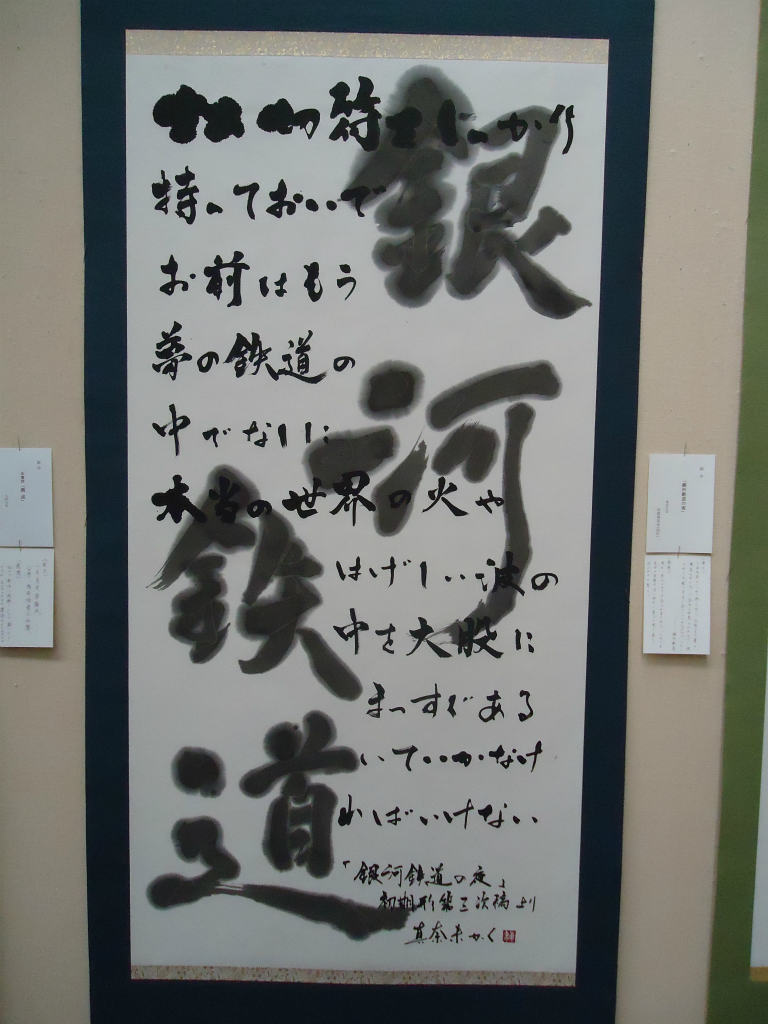 銀河
鉄道
さあ切符をしっかり
持っておいで
お前はもう
夢の鉄道の
中でなしに
本当の世界の火や
はげしい波の
中を大股に
まっすぐある
いていかなけ
ればいけない
「銀河鉄道の夜」
初期形第三次稿より
かく